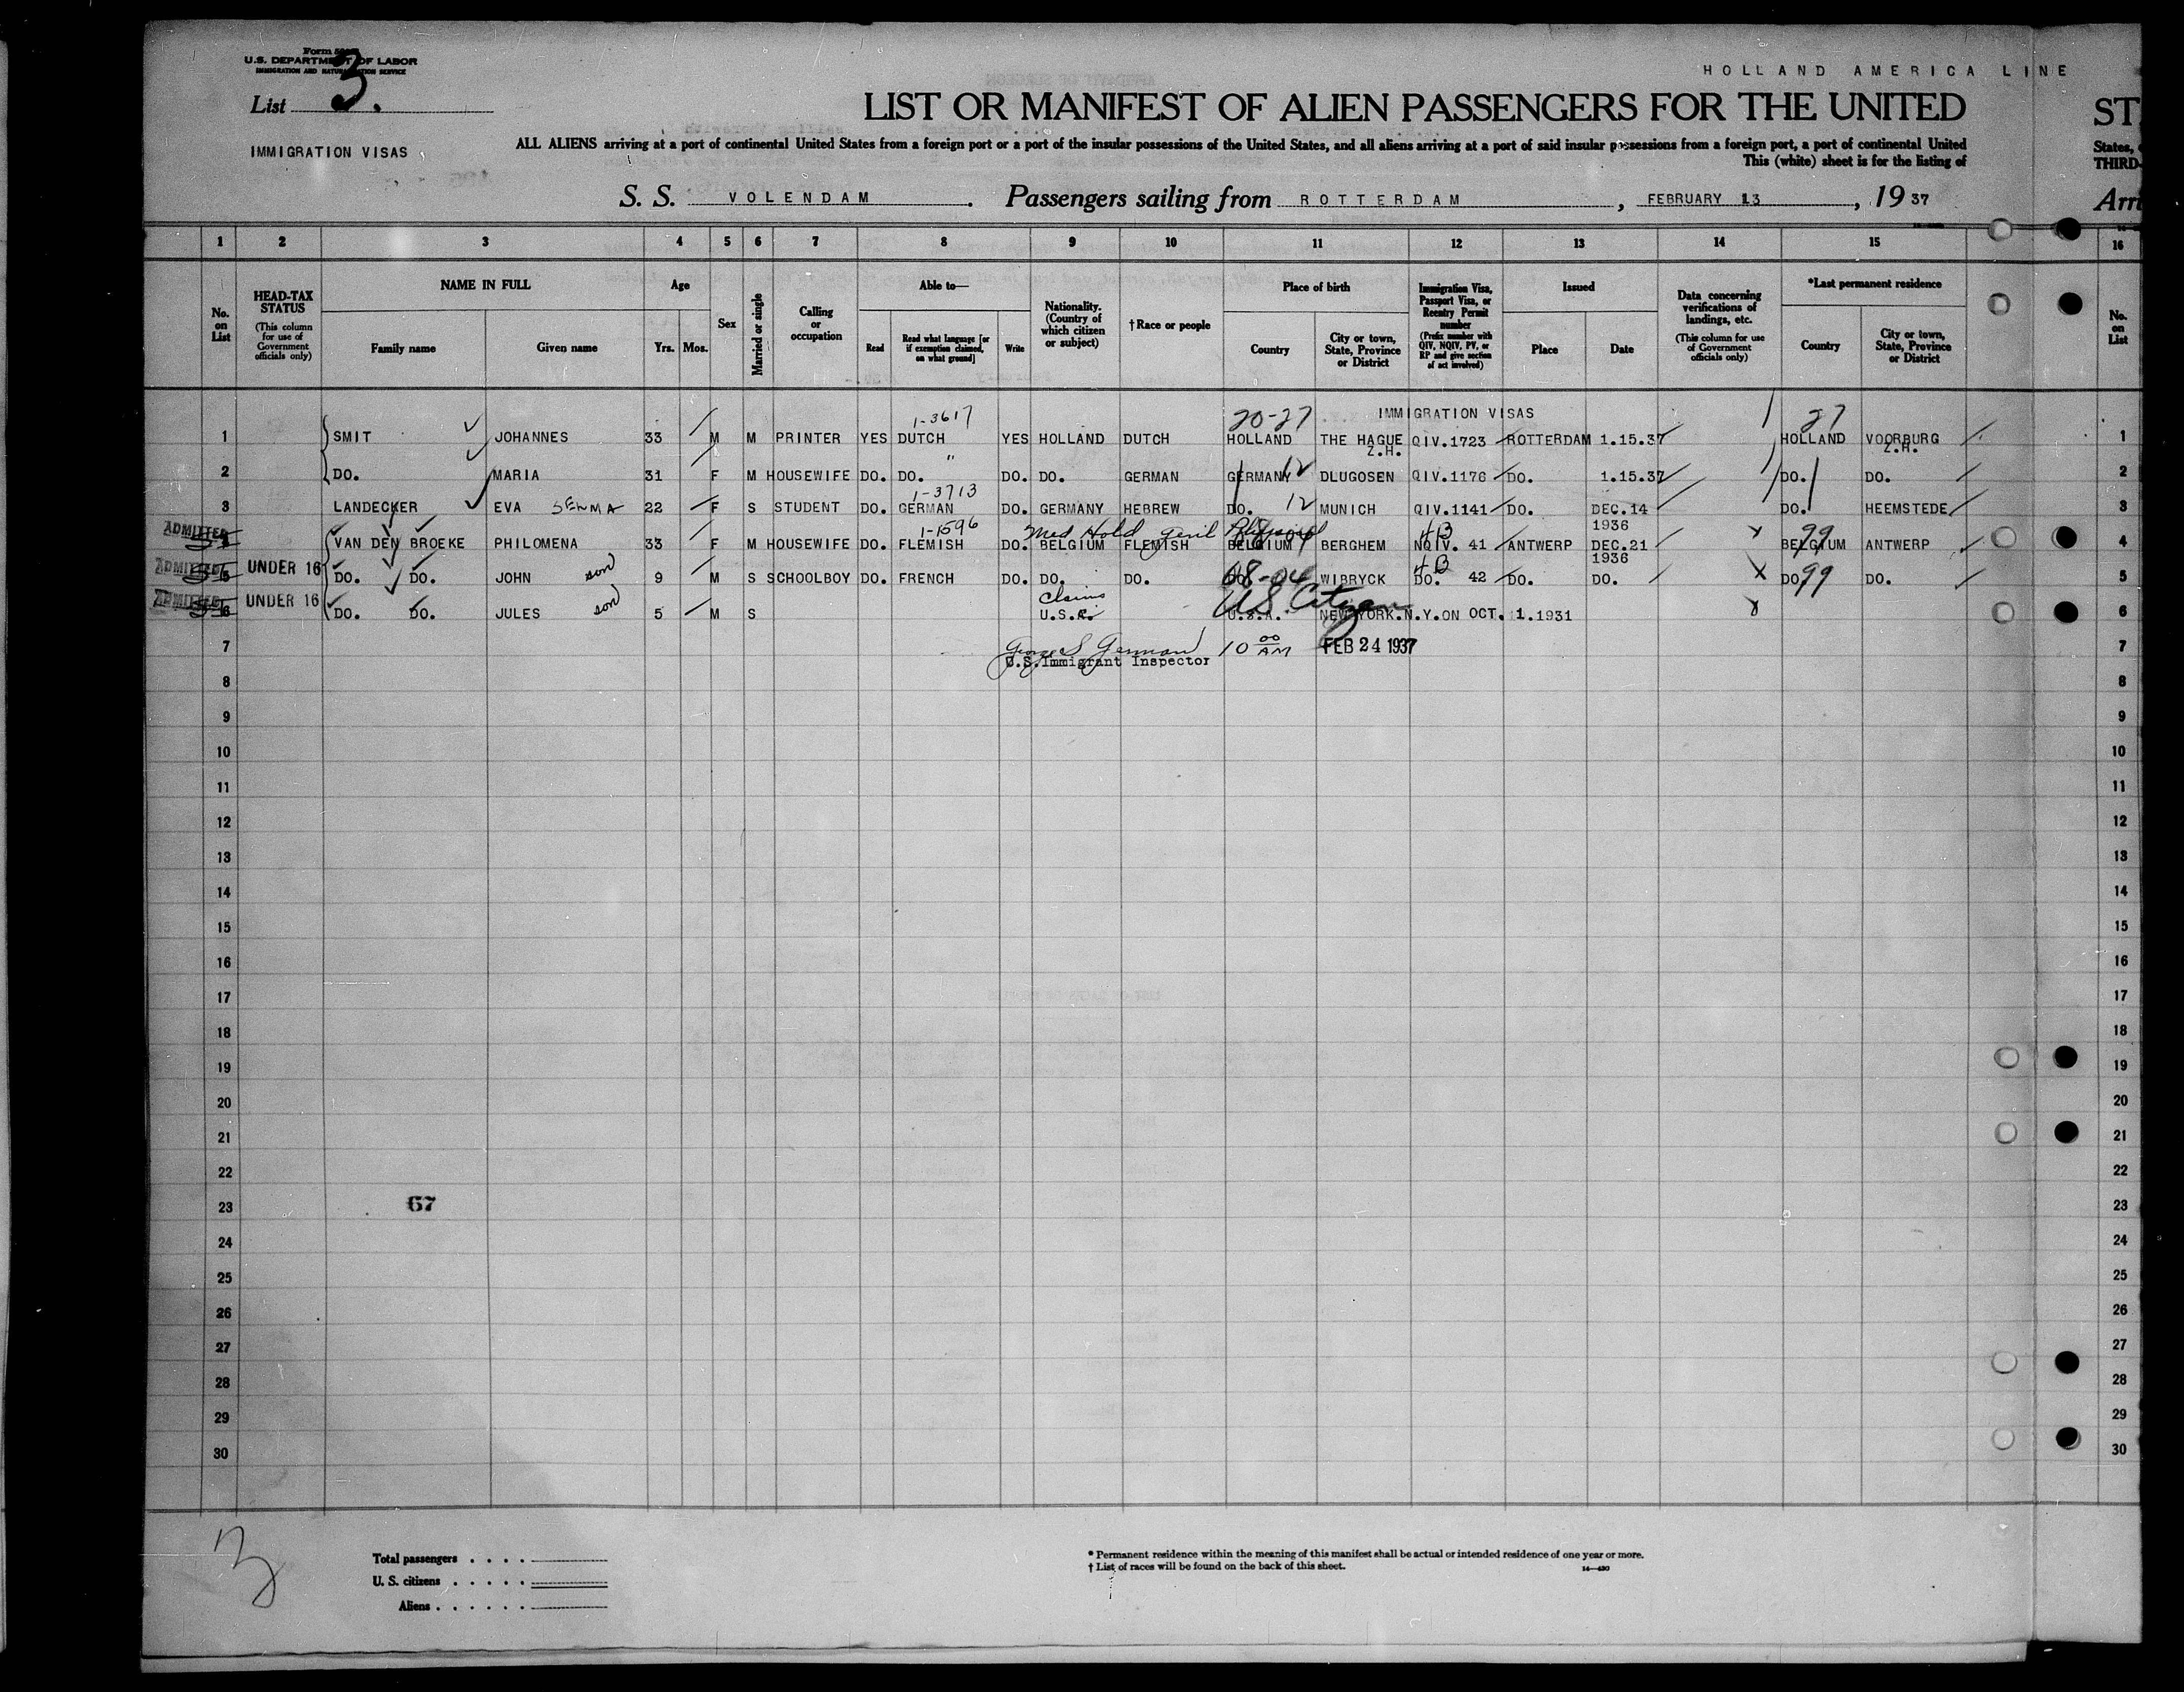 Form
U.S. DEPARTMENT OF LABOR
IMMIGRATION AND NATURALIZATION SERVICE
List 3.
IMMIGRATION VISAS
HOLLAND AMERICA LINE
LIST OR MANIFEST OF ALIEN PASSENGERS FOR THE UNITED ST
ALL ALIENS arriving at a port of continental United States from a foreign port or a port of the insular possessions of the United States, and all aliens arriving at a port of said insular possessions from a foreign port, a port of continental United States,
This (white) sheet is for the listing of THIRD-
S. S. VOLENDAM. Passengers sailing from ROTTERDAM, FEBRUARY 13, 1937 Arri
1 2 3 4 5 6 7 8 9 10 11 12 13 14 15 16
No. on List
HEAD-TAX STATUS (This column for use of Government officials only)
NAME IN FULL
Family name
Given name
Age
Yrs. Mos.
Sex
Married or single
Calling or occupation
Able to—
Read
Read what language [or if exemption claimed, on what ground]
Write
Nationality. (Country of which citizen or subject)
†Race or people
Place of birth
Country
City or town, State, Province or District
Immigration Visa, Passport Visa, or Reentry Permit number (Prefix number with QIV, NQIV, PV, or RP and give section of act involved)
Issued
Place
Date
Data concerning verifications of landings, etc. (This column for use of Government officials only)
*Last permanent residence
Country
City or town, State, Province or District
No. on List
1-3617 20-27 IMMIGRATION VISAS 27
1 SMIT JOHANNES 33 M M PRINTER YES DUTCH YES HOLLAND DUTCH HOLLAND THE HAGUE Z.H. QIV.1723 ROTTERDAM 1.15.37 HOLLAND VOORBURG Z.H. 1
" 12
2 DO. MARIA 31 F M HOUSEWIFE DO. DO. DO. DO. GERMAN GERMANY DLUGOSEN QIV.1176 DO. 1.15.37 DO. DO. 2
1-3713 12
3 LANDECKER EVA SELMA 22 F S STUDENT DO. GERMAN DO. GERMANY HEBREW DO. MUNICH QIV.1141 DO. DEC.14 1936 DO. HEEMSTEDE 3
ADMITTED 1-1596 Med Hold 4B 99
4 VAN DEN BROEKE PHILOMENA 33 F M HOUSEWIFE DO. FLEMISH DO. BELGIUM FLEMISH BELGIUM BERGHEM NQIV. 41 ANTWERP DEC.21 1936 BELGIUM ANTWERP 4
ADMITTED 4B
5 UNDER 16 DO. DO. JOHN son 9 M S SCHOOLBOY DO. FRENCH DO. DO. DO. WIBRYCK DO. 42 DO. DO. DO. 99 DO. 5
ADMITTED claims US Citizen
6 UNDER 16 DO. DO. JULES son 5 M S U.S.A. U.S.A. NEW YORK.N.Y.ON OCT. 1.1931 6
7 George S German 10 00 AM FEB 24 1937 7
U.S.Immigrant Inspector
8 8
9 9
10 10
11 11
12 12
13 13
14 14
15 15
16 16
17 17
18 18
19 19
20 20
21 21
22 22
23 67 23
24 24
25 25
26 26
27 27
28 28
29 29
30 30
3
Total passengers
U. S. citizens
Aliens
* Permanent residence within the meaning of this manifest shall be actual or intended residence of one year or more.
† List of races will be found on the back of this sheet.